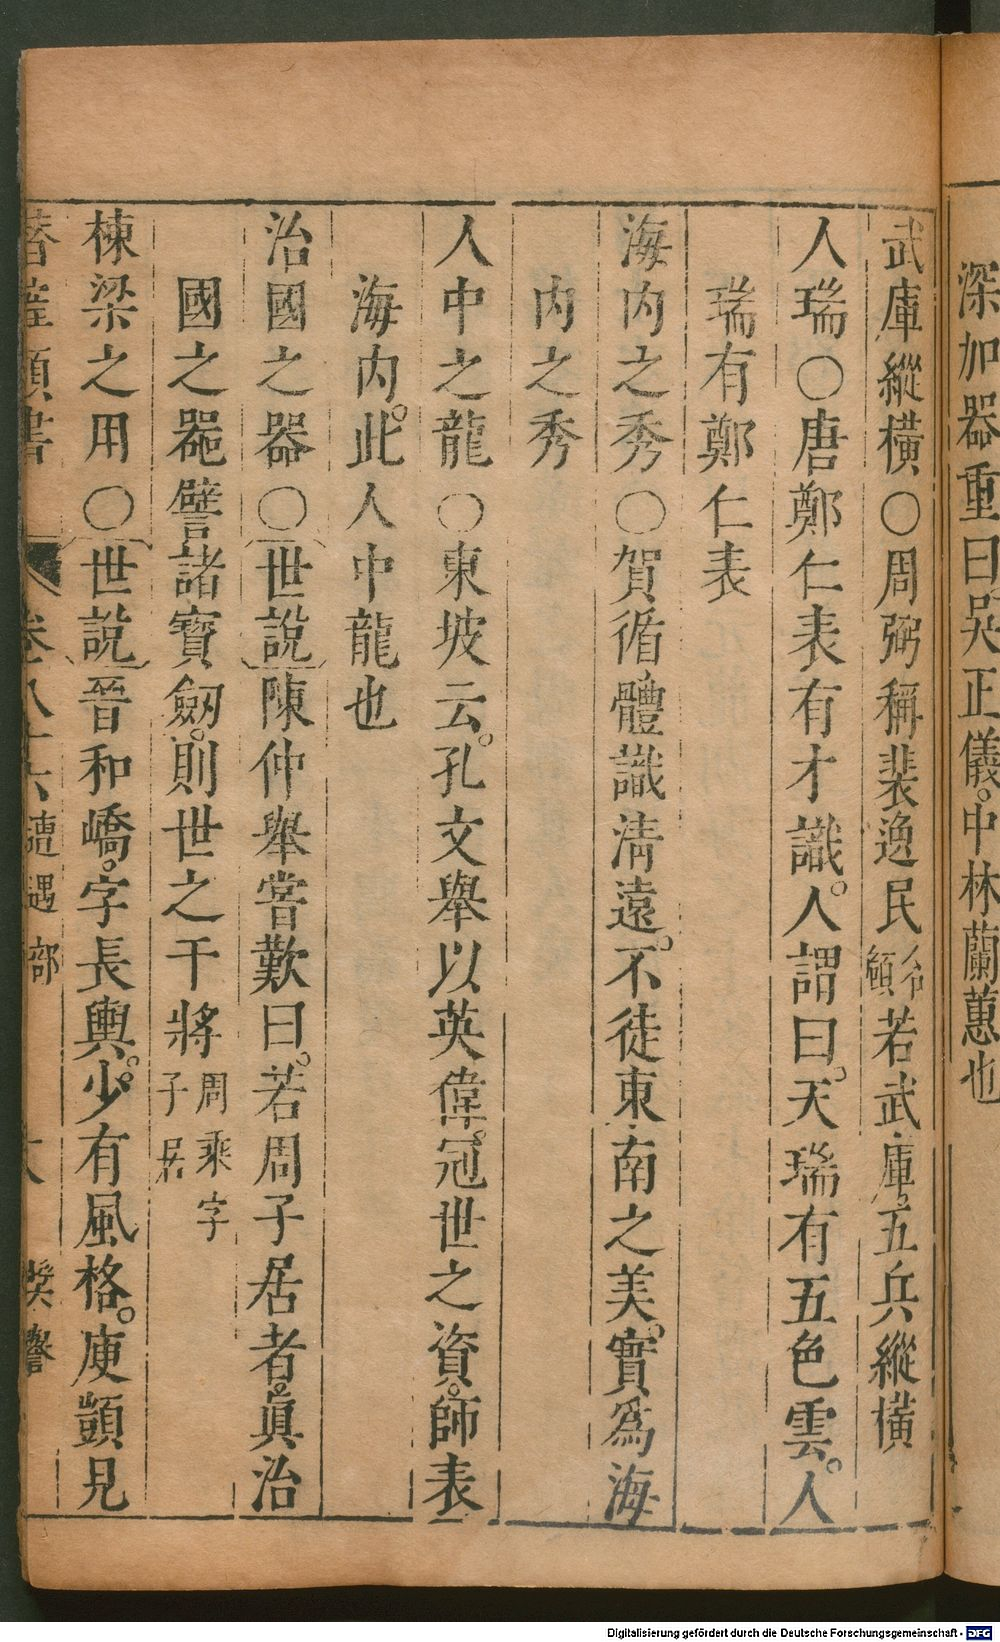 深加器重曰吳正儀。中林蘭蕙也
武庫縱橫〇周弼稱裴逸民令顧若武庫。五兵縱橫
人瑞〇唐鄭仁表有才識。人謂曰。天瑞有五色雲。人
瑞有鄭仁表
海內之秀〇賀循體識清遠。不徒東南之美。實爲海
內之秀
人中之龍〇東坡云。孔文舉以英偉。冠世之資。師表
海內。此人中龍也
治國之器〇世說陳仲舉嘗歎曰。若周子居者。眞治
國之器譬諸寶劒。則世之干將周乘字子居
棟梁之用〇世說晉和嶠。字長輿。少有風格。庾顗見
類書 卷八十六 遭遇部 獎譽
Digitalisierung gefördert durch die Deutsche Forschungsgemeinschaft - DFG